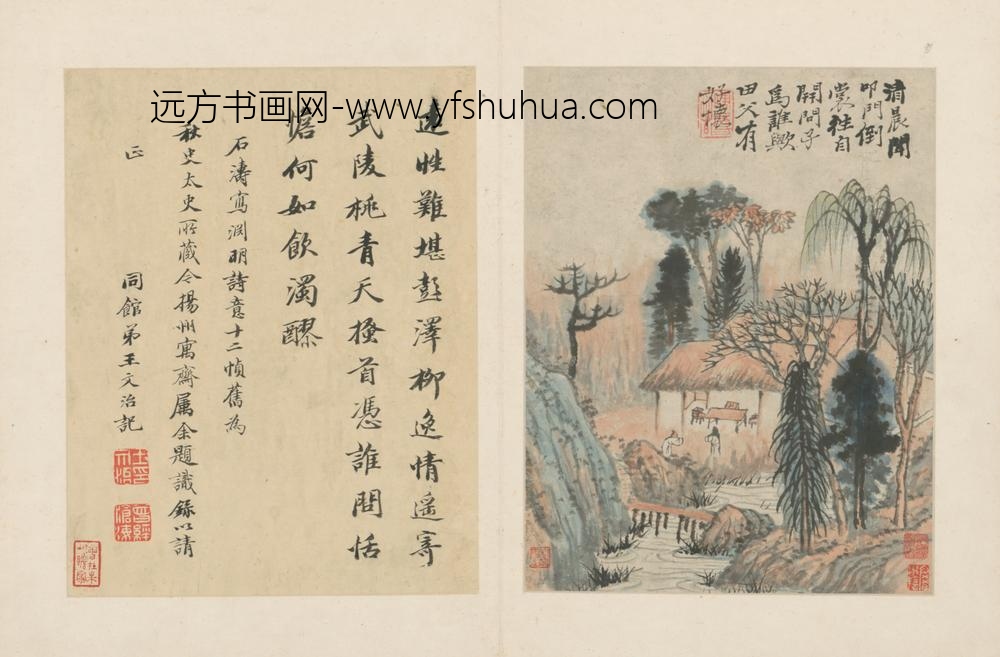 远方书画网-www.yfshuhua.com
清晨聞
叩門倒
裳往自
開問子
為誰歟
田父有
好懷
遠性難堪彭澤柳逸情遙寄
武陵桃青天搔首憑誰問恬
憺何如飲濁醪
石濤寫淵明詩意十二幀舊為
秋史太史所藏今揚州寓齋屬余題識錄以請
正
同館弟王文治記
曾經滄海